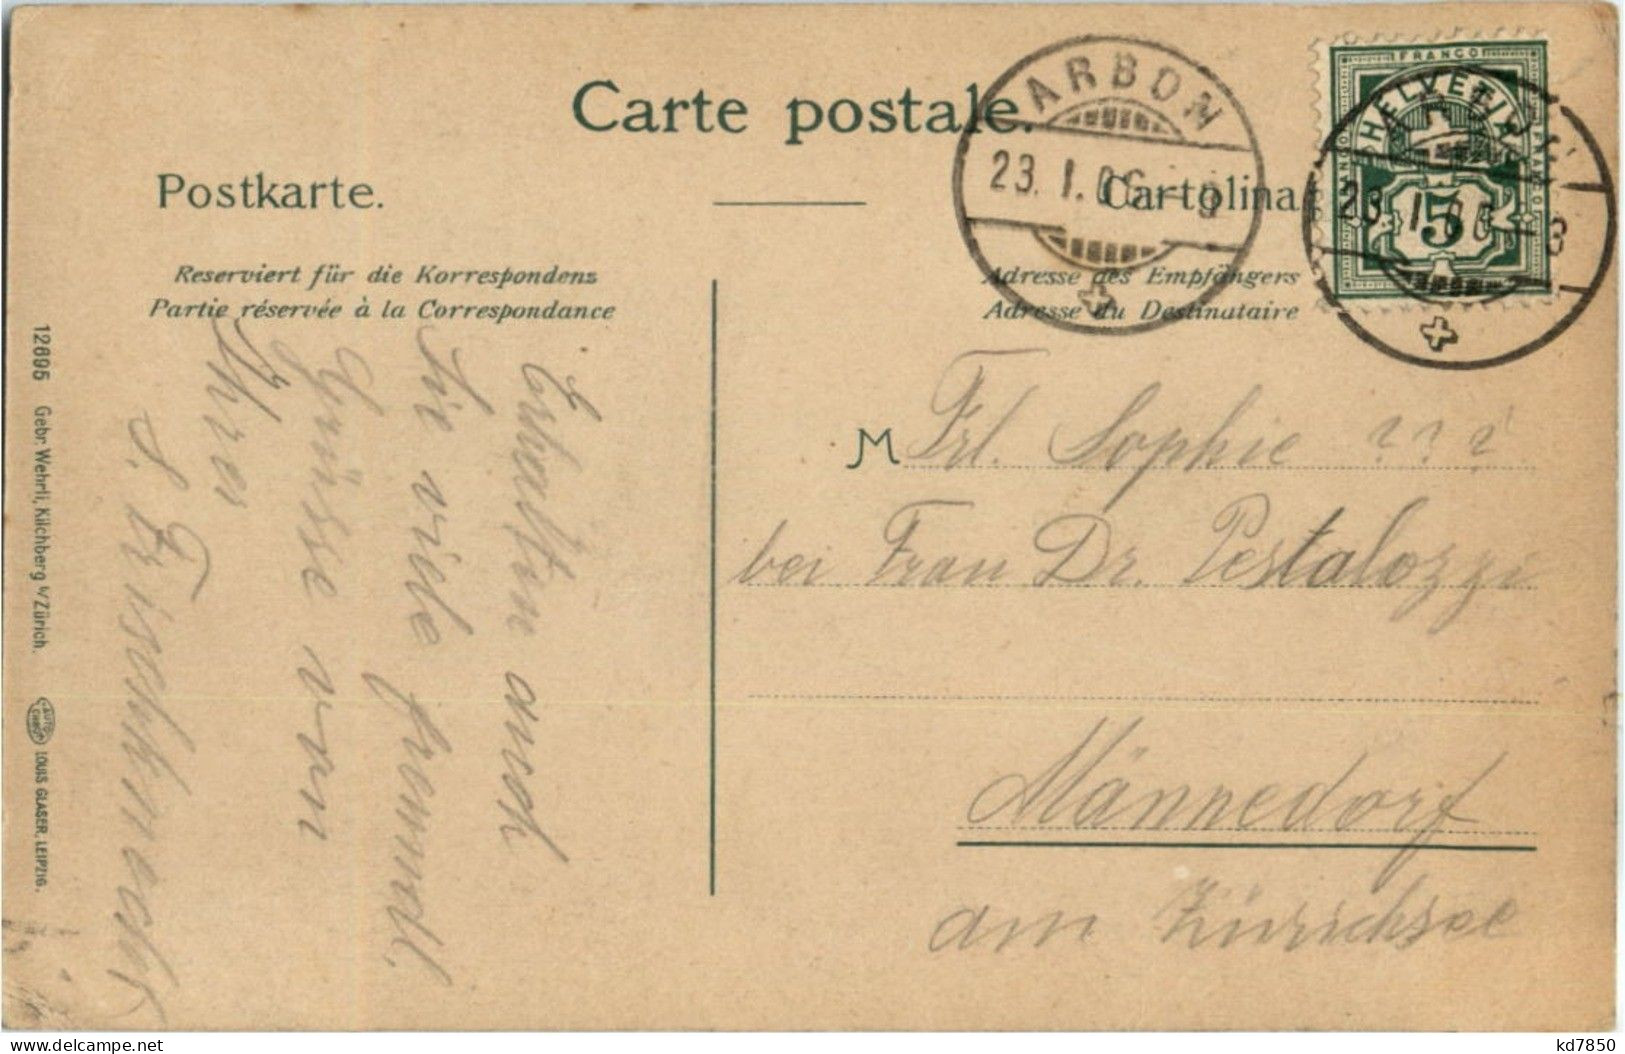 Carte postale.
Postkarte.
Cartolina
Reserviert für die Korrespondenz
Partie réservée à la Correspondance
Adresse des Empfängers
Adresse du Destinataire
ARBON
23. I. 06
FRANCO
HELVETIA
FRANCO
FRANCO
5
ARBON
23. I. 06 - 8
Erhalten auch
Sie viele freundl.
Grüsse von
Ihrer
M Frl. Sophie ? ? ?
bei Frau Dr. Pestalozzi
Männedorf
am Zürichsee
12695 Gebr. Wehrli, Kilchberg b/Zürich.
LOUIS GLASER, LEIPZIG.
kd7850